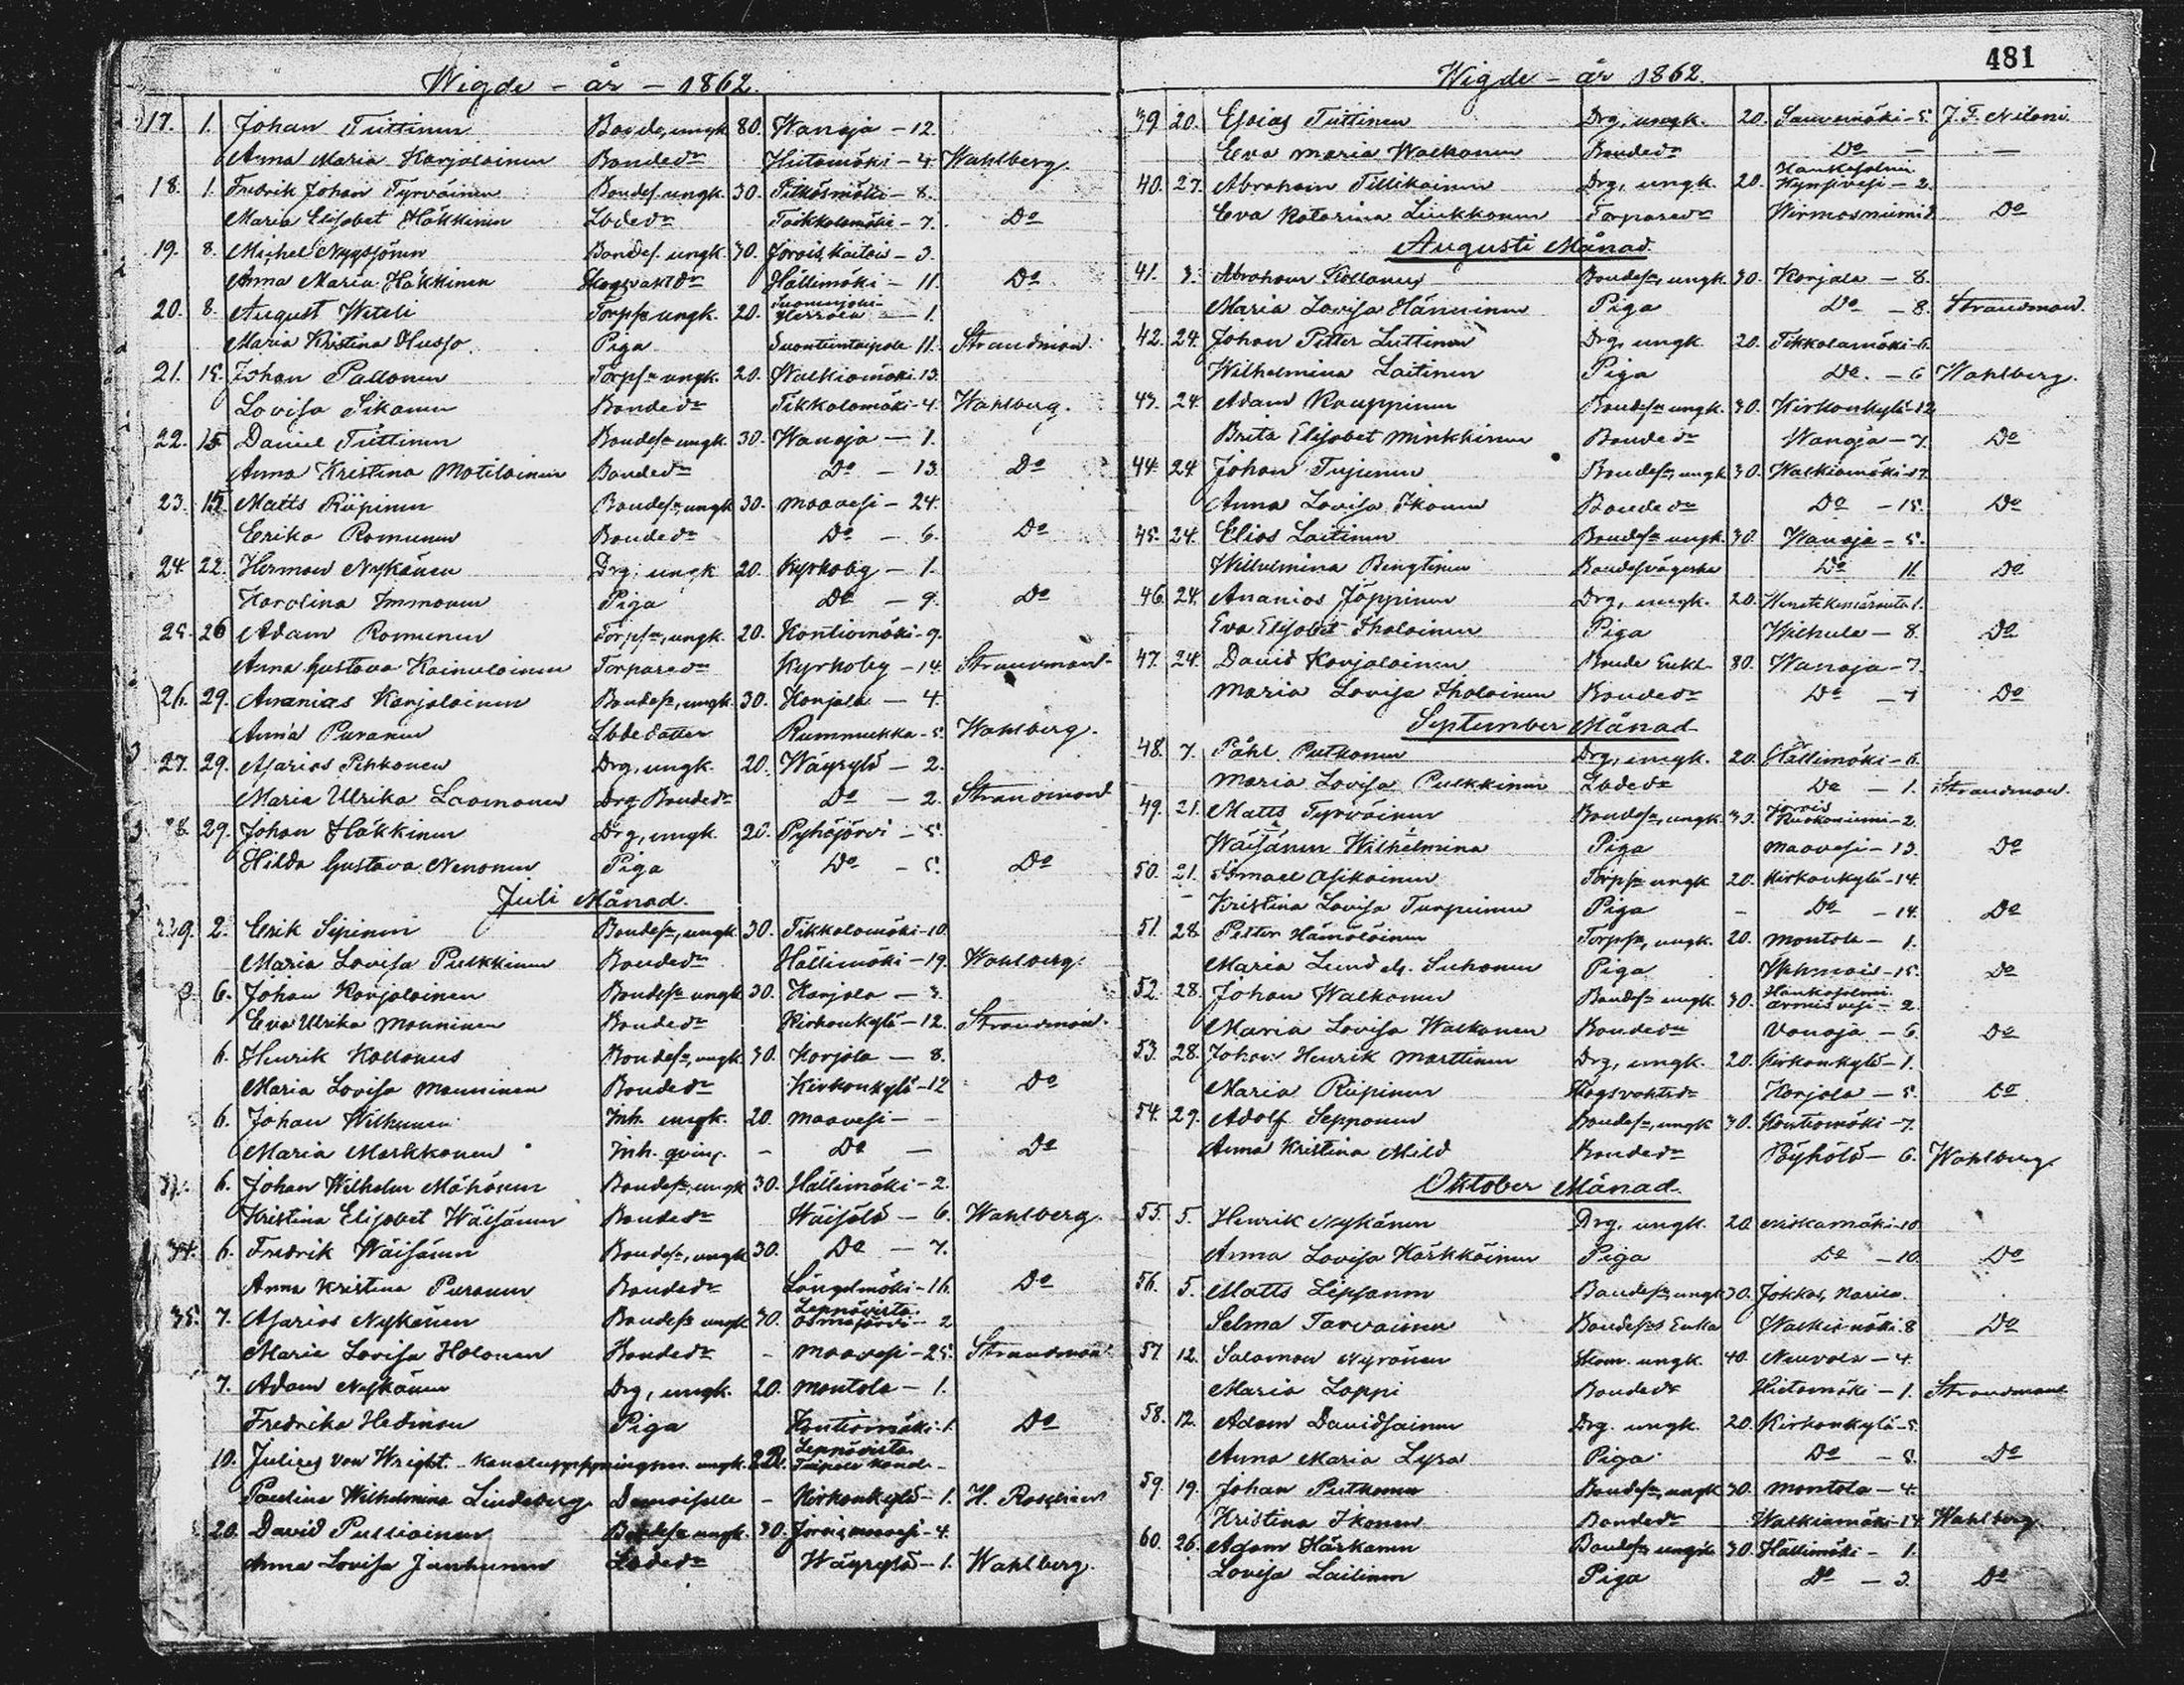 Wigde - år - 1862.
17. 1. Johan Tiittinen Bonde, ungk. 80. Wanaja - 12.
Anna Maria Karjalainen Bondedr Hietamäki - 4. Wahlberg.
18. 1. Fredrik Johan Tyrväinen Bondes. ungk. 30. Pitkäsmäki - 8.
Maria Elisabet Häkkinen Lbdedr Tikkalamäki - 7. Do
19. 8. Michel Nyyssönen Bondes. ungk. 30. Jorois, Kaitais - 3.
Anna Maria Häkkinen Skogsvaktdr Hällimäki - 11. Do
20. 8. August Witeli Torpsn ungk. 20. Suonenjoki - 1.
Maria Kristina Husso Piga Suontientaipale 11. Strandman.
21. 15. Johan Pallonen Torpsn ungk. 20. Walkiamäki 13.
Lovisa Sikanen Bondedr Tikkalamäki - 4. Wahlberg.
22. 15 Daniel Tiittinen Bondesn ungk. 30. Wanaja - 1.
Anna Kristina Matilainen Bondedr Do - 13. Do
23. 15. Matts Riipinen Bondesn ungk 30. Maavesi - 24.
Erika Romunen Bondedr Do - 6. Do
24. 22. Herman Nykänen Drg. ungk 20. Kyrkoby - 1.
Karolina Immonen Piga Do - 9. Do
25. 26 Adam Romunen Torpsn, ungk. 20. Kontiomäki - 9.
Anna Gustava Kainulainen Torparedr Kyrkoby - 14. Strandman.
26. 29. Ananias Karjalainen Bondesn, ungk. 30. Karjala - 4.
Anna Puranen Lbdedotter Rummukka - 5. Wahlberg.
27. 29. Asarias Pekkonen Drg, ungk. 20. Wäyrylä - 2.
Maria Ulrika Laamanen Drg Bondedr Do - 2. Strandman
28. 29. Johan Häkkinen Drg, ungk. 20. Pyhäjärvi - 5.
Hilda Gustava Nenonen Piga Do - 5. Do
Juli Månad.
29. 2. Erik Sipinen Bondesn, ungk 30. Tikkalamäki - 10.
Maria Lovisa Pulkkinen Bondedr Hällimäki - 19. Wahlberg.
6. Johan Karjalainen Bondesn ungk 30. Karjala - 3.
Eva Ulrika Manninen Bondedr Kirkonkylä - 12. Strandman.
6. Henrik Kollanus Bondesn, ungk 30. Karjala - 8.
Maria Lovisa Manninen Bondedr Kirkonkylä - 12 Do
6. Johan Wilkunen Inh. ungk. 20. Maavesi -
Maria Markkanen Inh. qving. - Do - Do
6. Johan Wilhelm Mähönen Bondesn, ungk 30. Hällimäki - 2.
Kristina Elisabet Wäisänen Bondedr Wäisälä - 6. Wahlberg.
34. 6. Fredrik Wäisänen Bondesn, ungk 30. Do - 7.
Anna Kristina Puranen Bondedr Längelmäki - 16. Do
35. 7. Asarias Nykänen Bondesn ungk 30. Leppävirta Osmajärvi - 2
Maria Lovisa Holonen Bondedr - Maavesi - 25. Strandman.
7. Adam Nykänen Drg, ungk. 20. Montola - 1.
Fredrika Hedman Piga Kontiomäki - 1. Do
10. Julius von Wright - ungk. Leppävirta Taipale kanal -
Paulina Wilhelmina Lindeberg Demoiselle - Kirkonkylä - 1.
20. David Pulliainen Bondesn ungk. 30. Jorois, Maavesi - 4.
Anna Lovisa Janhunen Lbdedr Wäyrylä - 1. Wahlberg.
481
Wigde - år 1862.
39. 20. Esaias Tiittinen Drg, ungk. 20. Sauvumäki - 5. J. F. Niloni
Eva Maria Walkonen Bondedr Do - -
40. 27. Abraham Tillikainen Drg, ungk. 20. Hankasalmi Kynsivesi - 2.
Eva Katarina Liukkonen Torparedr Wirmasniemi 2 Do
Augusti Månad.
41. 3. Abraham Kollanus Bondesn, ungk. 30. Karjala - 8.
Maria Lovisa Hänninen Piga Do - 8. Strandman.
42. 24. Johan Petter Luttinen Drg, ungk 20. Tikkalamäki - 6.
Wilhelmina Laitinen Piga Do. - 6 Wahlberg.
43. 24. Adam Kauppinen Bondesn ungk. 30. Kirkonkylä - 12
Brita Elisabet Minkkinen Bondedr Wanaja - 7. Do
44. 24 Johan Tujunen Bondesn, ungk 30. Walkiamäki - 17.
Anna Lovisa Ikonen Bondedr Do - 15. Do
45. 24. Elias Laitinen Bondesn ungk. 30. Wanaja - 5.
Wilhelmina Bengtinen Bondesvägerska Do 11. Do
46. 24. Ananias Jäppinen Drg, ungk. 20.
Eva Elisabet Iholainen Piga Wehula - 8. Do
47. 24. David Karjalainen Bonde Enkl. 80. Wanaja - 7.
Maria Lovisa Iholainen Bondedr Do - 7 Do
September Månad
48. 7. Påhl Putkonen Drg, ungk. 20. Hällimäki - 6.
Maria Lovisa Pulkkinen Lbdedr Do - 1. Strandman.
49. 21. Matts Tyrväinen Bondesn, ungk 30. Jorois Ruokoniemi - 2.
Wäisänen Wilhelmina Piga Maavesi - 13. Do
50. 21. Ismael Asikainen Torpsn ungk 20. Kirkonkylä - 14.
Kristina Lovisa Turpeinen Piga - Do - 14. Do
51. 28. Petter Hämäläinen Torpsn, ungk. 20. Montola - 1.
Maria Suhonen Piga - 15. Do
52. 28. Johan Walkonen Bondesn ungk. 30. Hankasalmi Armisvesi - 2.
Maria Lovisa Walkonen Bondedr Vanaja - 6. Do
53. 28. Johan Henrik Marttinen Drg, ungk. 20. Kirkonkylä - 1.
Maria Riipinen Skogsvaktsdr Karjala - 5. Do
54. 29. Adolf Sepponen Bondesn, ungk 30. Kontiomäki - 7.
Anna Kristina Mild Bondedr Pöyhölä - 6. Wahlberg.
Oktober Månad.
55. 5. Henrik Nykänen Drg. ungk. 20. Niskamäki - 10.
Anna Lovisa Kärkkäinen Piga Do - 10. Do
56. 5. Matts Lipsanen Bondesn, ungk 30. Jokkas, Narila.
Selma Tarvainen Bondesns Enka Walkiamäki 8 Do
57. 12. Salomon Nyrönen ungk. 40. Neuvola - 4.
Maria Loppi Bondedr Hietamäki - 1. Strandman
58. 12. Adam Davidsainen Drg. ungk. 20. Kirkonkylä - 5.
Anna Maria Lyra Piga Do - 5. Do
59. 19. Johan Putkonen Bondesn, ungk 30. Montola - 4.
Kristina Ikonen Bondedr Walkiamäki - 14 Wahlberg.
60. 26. Adam Härkänen Bondesn, ungk 30. Hällimäki - 1.
Lovisa Laitinen Piga Do - 3. Do